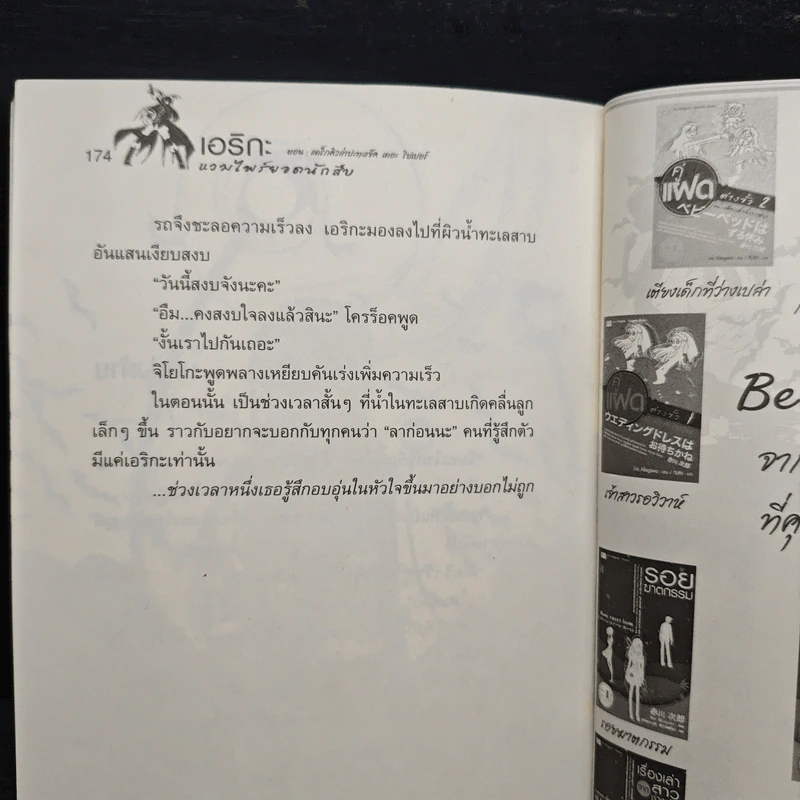 174
เอริกะ
ตอน :
แวมไพร์ยอดนักสืบ
รถจึงชะลอความเร็วลง เอริกะมองลงไปที่ผิวน้ำทะเลสาบ
อันแสนเงียบสงบ
“วันนี้สงบจังนะคะ”
“อืม...คงสงบใจลงแล้วสินะ” โครร็อคพูด
“งั้นเราไปกันเถอะ”
จิโยโกะพูดพลางเหยียบคันเร่งเพิ่มความเร็ว
ในตอนนั้น เป็นช่วงเวลาสั้นๆ ที่น้ำในทะเลสาบเกิดคลื่นลูก
เล็กๆ ขึ้น ราวกับอยากจะบอกกับทุกคนว่า “ลาก่อนนะ” คนที่รู้สึกตัว
มีแค่เอริกะเท่านั้น
...ช่วงเวลาหนึ่งเธอรู้สึกอบอุ่นในหัวใจขึ้นมาอย่างบอกไม่ถูก
คู่
แฝด
ต่างขั้ว 2
ベビーベッドは
เตียงเด็กที่ว่างเปล่า
คู่
แฝด
ต่างขั้ว 1
ウエディングドレスは
お待ちかね
เจ้าสาวรอวิวาห์
รอย
ฆาตกรรม
赤川 次郎
รอยฆาตกรรม
เรื่องเล่า
จาก
สาว
Be
จา
ที่คุ